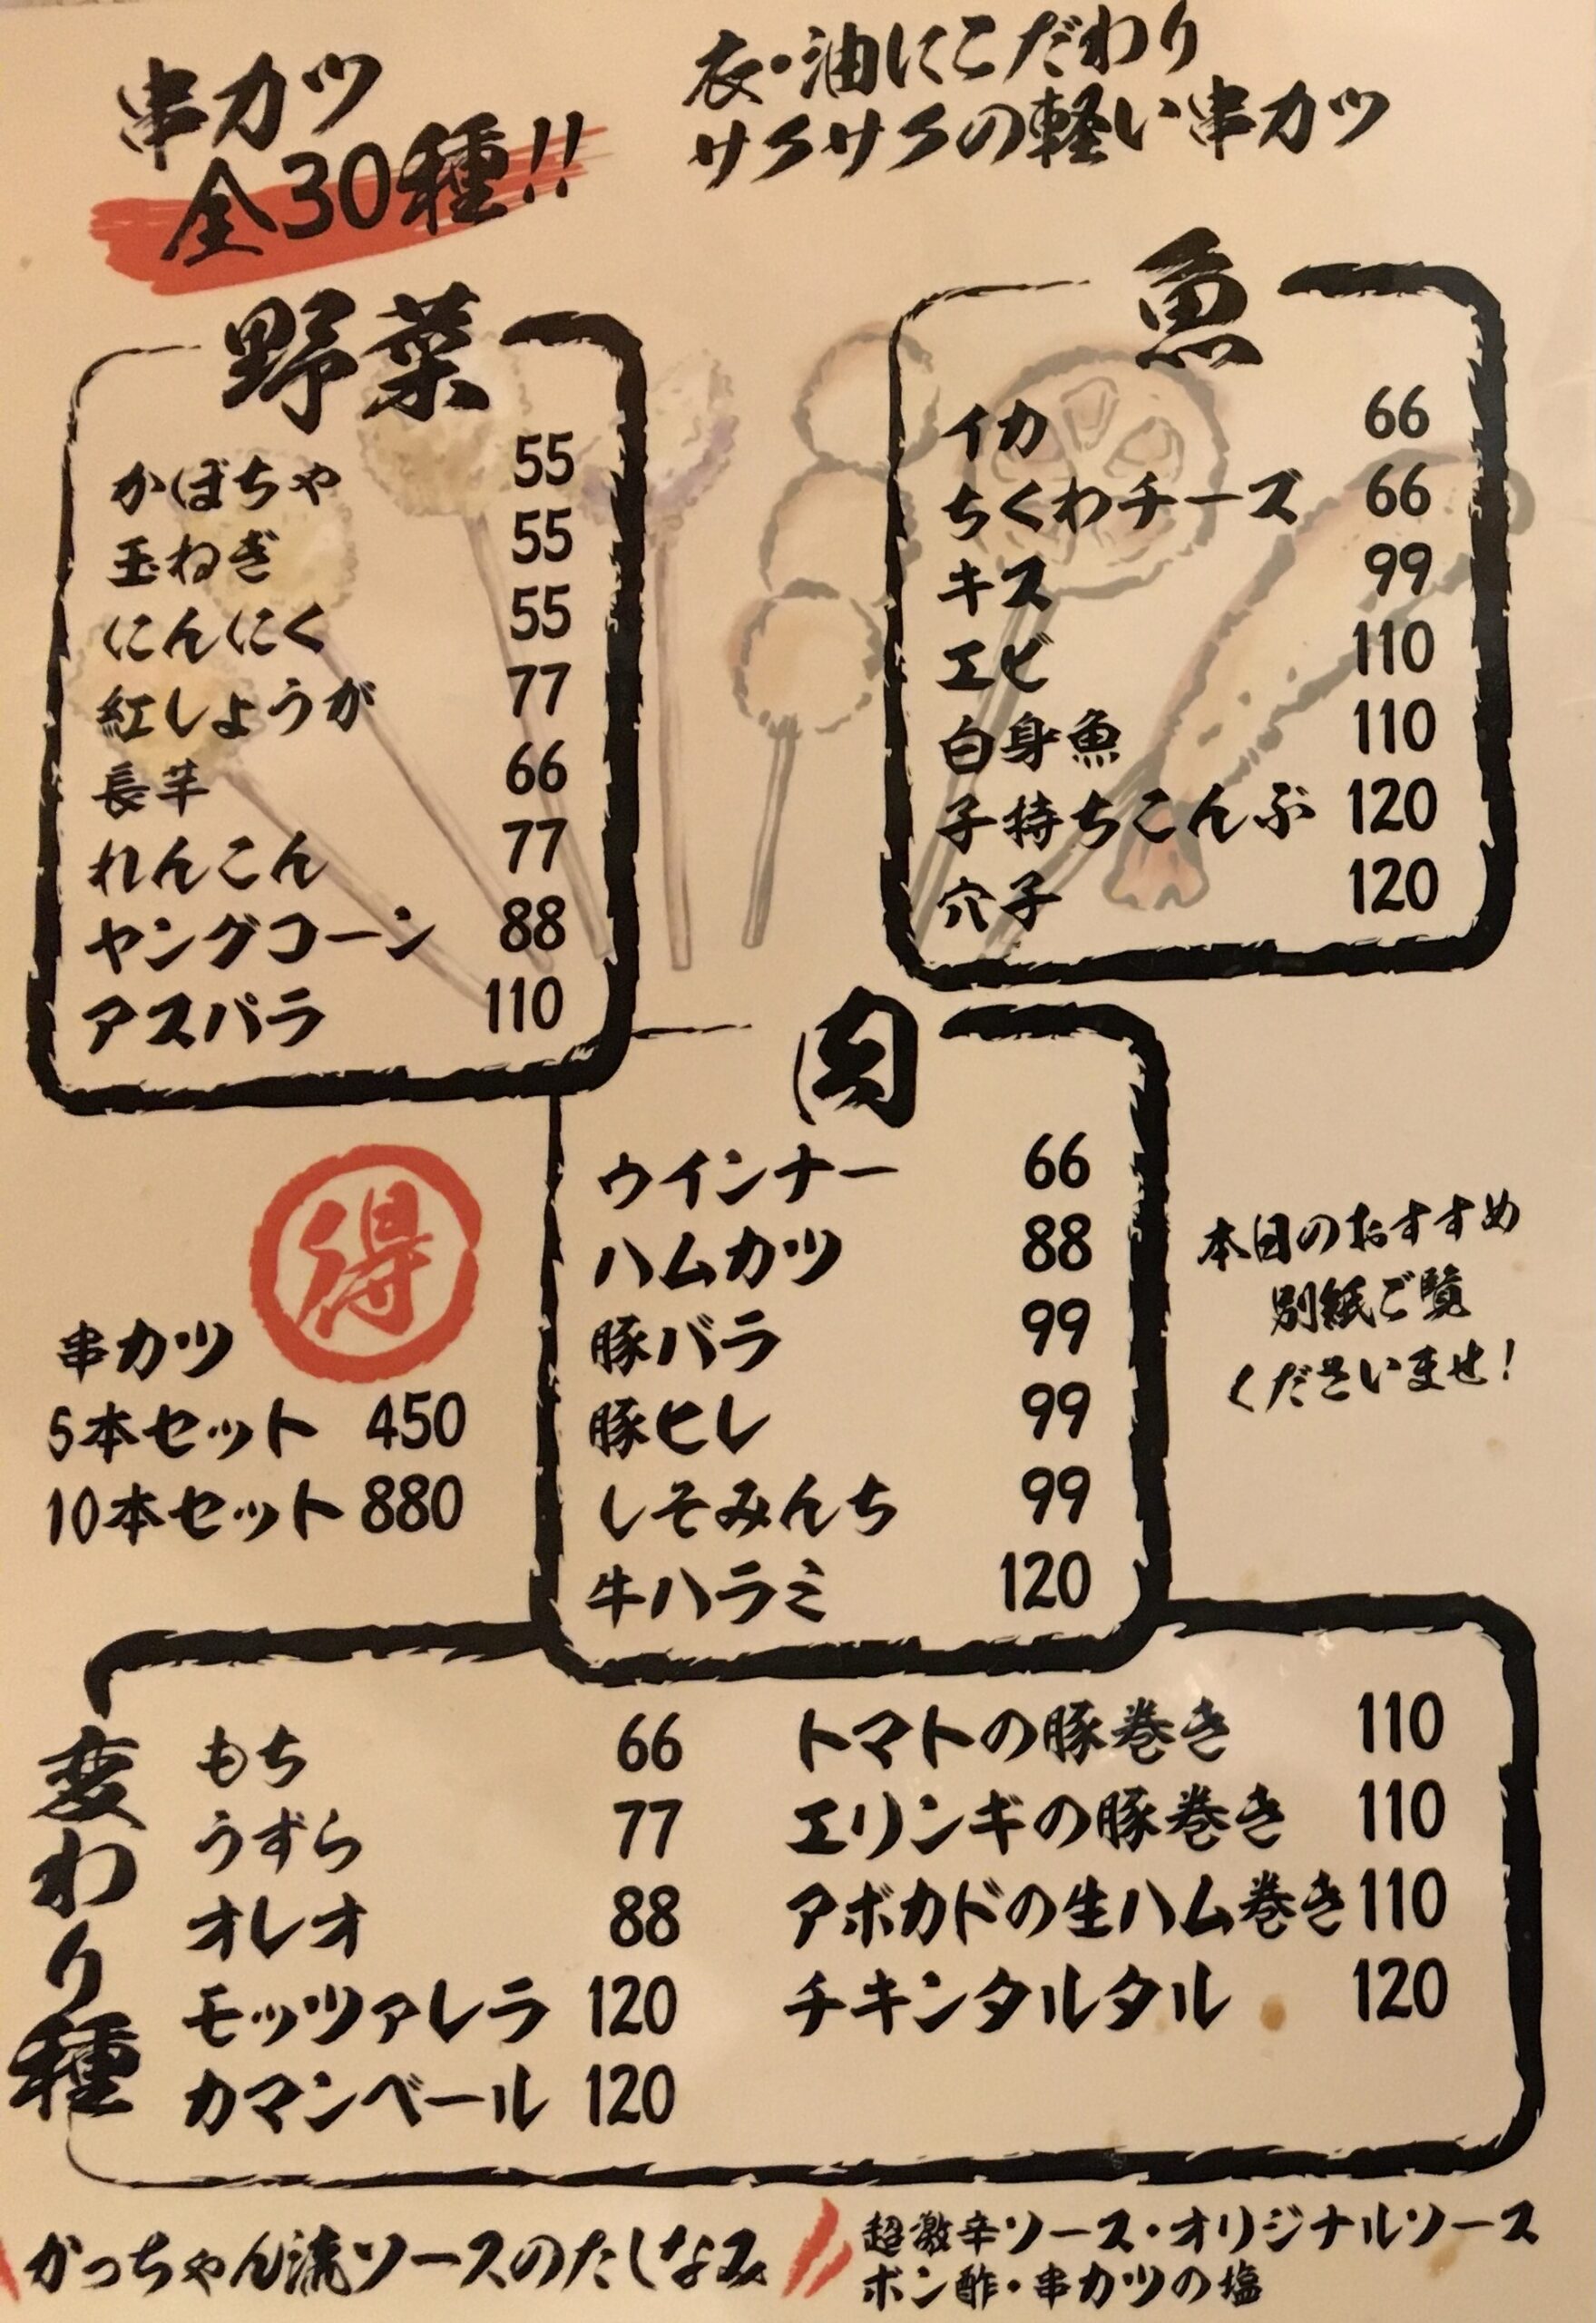 串カツ
全30種!!
衣・油にこだわり
サクサクの軽い串カツ
野菜
かぼちゃ 55
玉ねぎ 55
にんにく 55
紅しょうが 77
長芋 66
れんこん 77
ヤングコーン 88
アスパラ 110
魚
イカ 66
ちくわチーズ 66
キス 99
エビ 110
白身魚 110
子持ちこんぶ 120
穴子 120
肉
ウインナー 66
ハムカツ 88
豚バラ 99
豚ヒレ 99
しそみんち 99
牛ハラミ 120
得
串カツ
5本セット 450
10本セット 880
本日のおすすめ
別紙ご覧
くださいませ!
変わり種
もち 66
うずら 77
オレオ 88
モッツァレラ 120
カマンベール 120
トマトの豚巻き 110
エリンギの豚巻き 110
アボカドの生ハム巻き 110
チキンタルタル 120
かっちゃん流ソースのたしなみ
超激辛ソース・オリジナルソース
ポン酢・串カツの塩